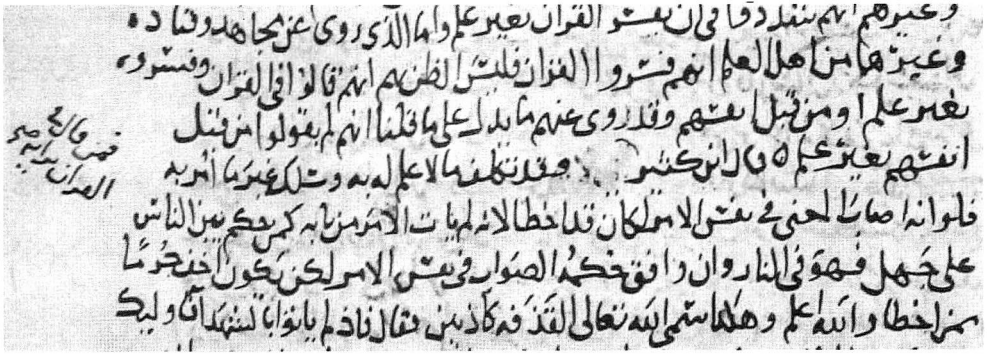 وغيرهم انهم شددوا في ان يفسر القران بغير علم واما الذي روى عن مجاهد وقتاده
وغيرهما من اهل العلم انهم فسروا القران فليس الظن بهم انهم قالوا في القران وفسروه
بغير علم او من قبل انفسهم وقد روى عنهم ما يدل على ما قلنا انهم لم يقولوا من قبل
انفسهم بغير علم ه قال ابن كثير فقد تكلف ما لا علم له به وسلك غير ما امر به
فلو انه اصاب المعنى في نفس الامر لكان قد اخطا لانه لم يات الامر من بابه كمن حكم بين الناس
على جهل فهو في النار وان وافق حكمه الصواب في نفس الامر لكن يكون اخف جرما
ممن اخطا والله اعلم وهكذا سمى الله تعالى القذفه كاذبين فقال فاذ لم ياتوا بالشهداء فاوليك
فمن قال في
القران برايه